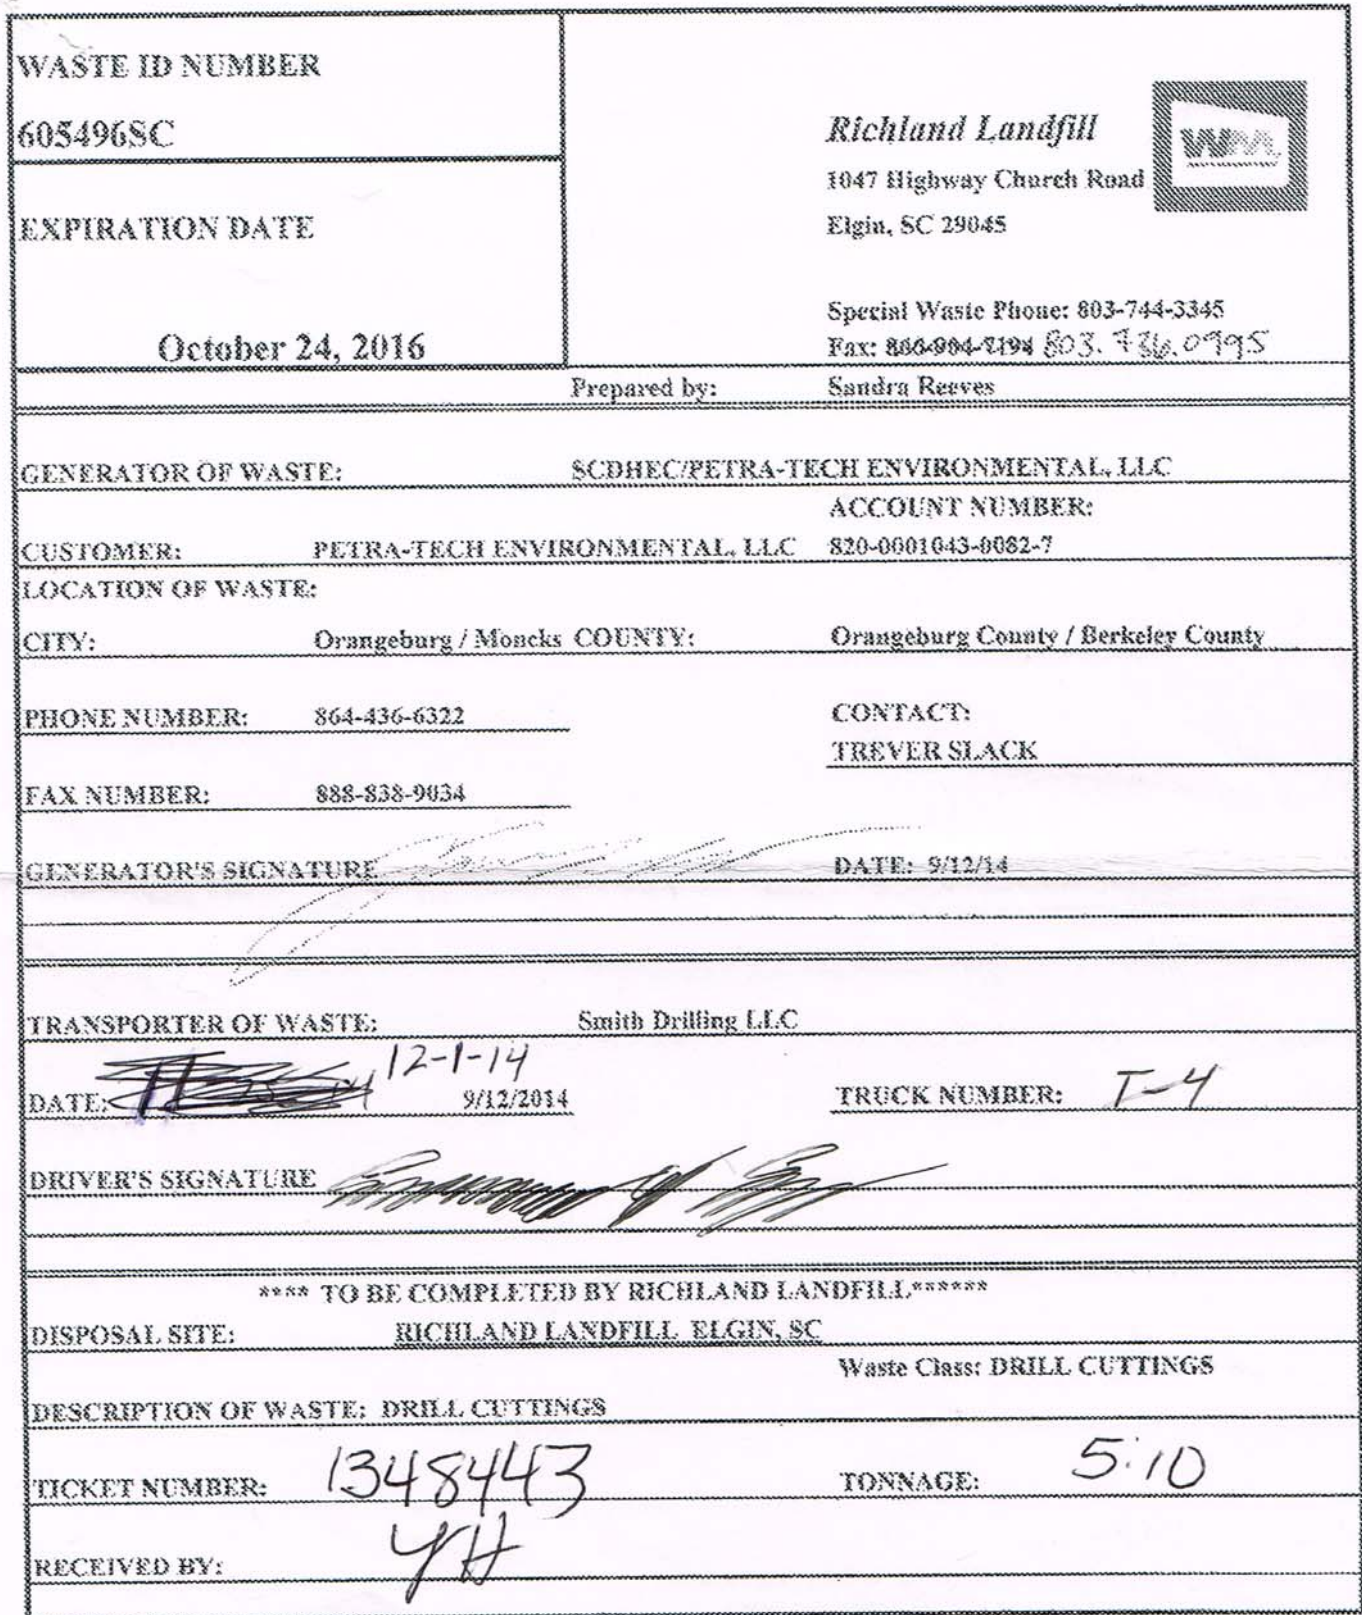 WASTE ID NUMBER
605496SC
EXPIRATION DATE
October 24, 2016
Richland Landfill
WM
1047 Highway Church Road
Elgin, SC 29045
Special Waste Phone: 803-744-3345
Fax: 803.736.0995
Prepared by: Sandra Reeves
GENERATOR OF WASTE: SCDHEC/PETRA-TECH ENVIRONMENTAL, LLC
ACCOUNT NUMBER:
CUSTOMER: PETRA-TECH ENVIRONMENTAL, LLC 820-0001043-0082-7
LOCATION OF WASTE:
CITY: Orangeburg / Moncks COUNTY: Orangeburg County / Berkeley County
PHONE NUMBER: 864-436-6322
CONTACT:
TREVER SLACK
FAX NUMBER: 888-838-9034
GENERATOR'S SIGNATURE DATE: 9/12/14
TRANSPORTER OF WASTE: Smith Drilling LLC
12-1-14
DATE: 9/12/2014 TRUCK NUMBER: T-4
DRIVER'S SIGNATURE
**** TO BE COMPLETED BY RICHLAND LANDFILL******
DISPOSAL SITE: RICHLAND LANDFILL ELGIN, SC
Waste Class: DRILL CUTTINGS
DESCRIPTION OF WASTE: DRILL CUTTINGS
TICKET NUMBER: 1348443 TONNAGE: 5.10
RECEIVED BY: YH